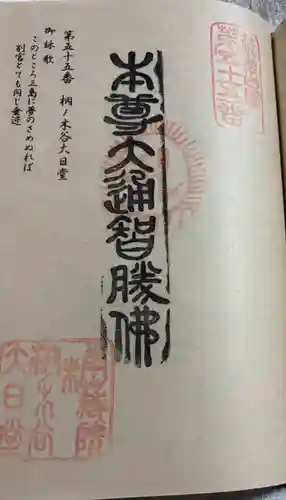 本尊大通智勝佛
第五十五番 桐ノ木谷大日堂
御詠歌
このところ三島に夢のさめぬれば
別宮とても同じ垂迹
第五十五番
南蔵院
大日堂